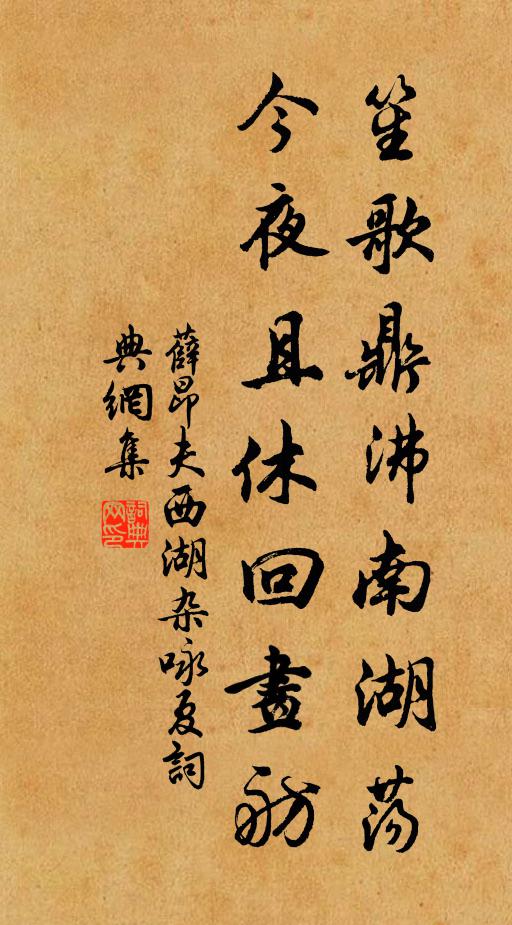 笙歌鼎沸南湖荡
今夜且休回畫舫
薛昂夫西湖杂咏夏詞
典網集
詞典網印